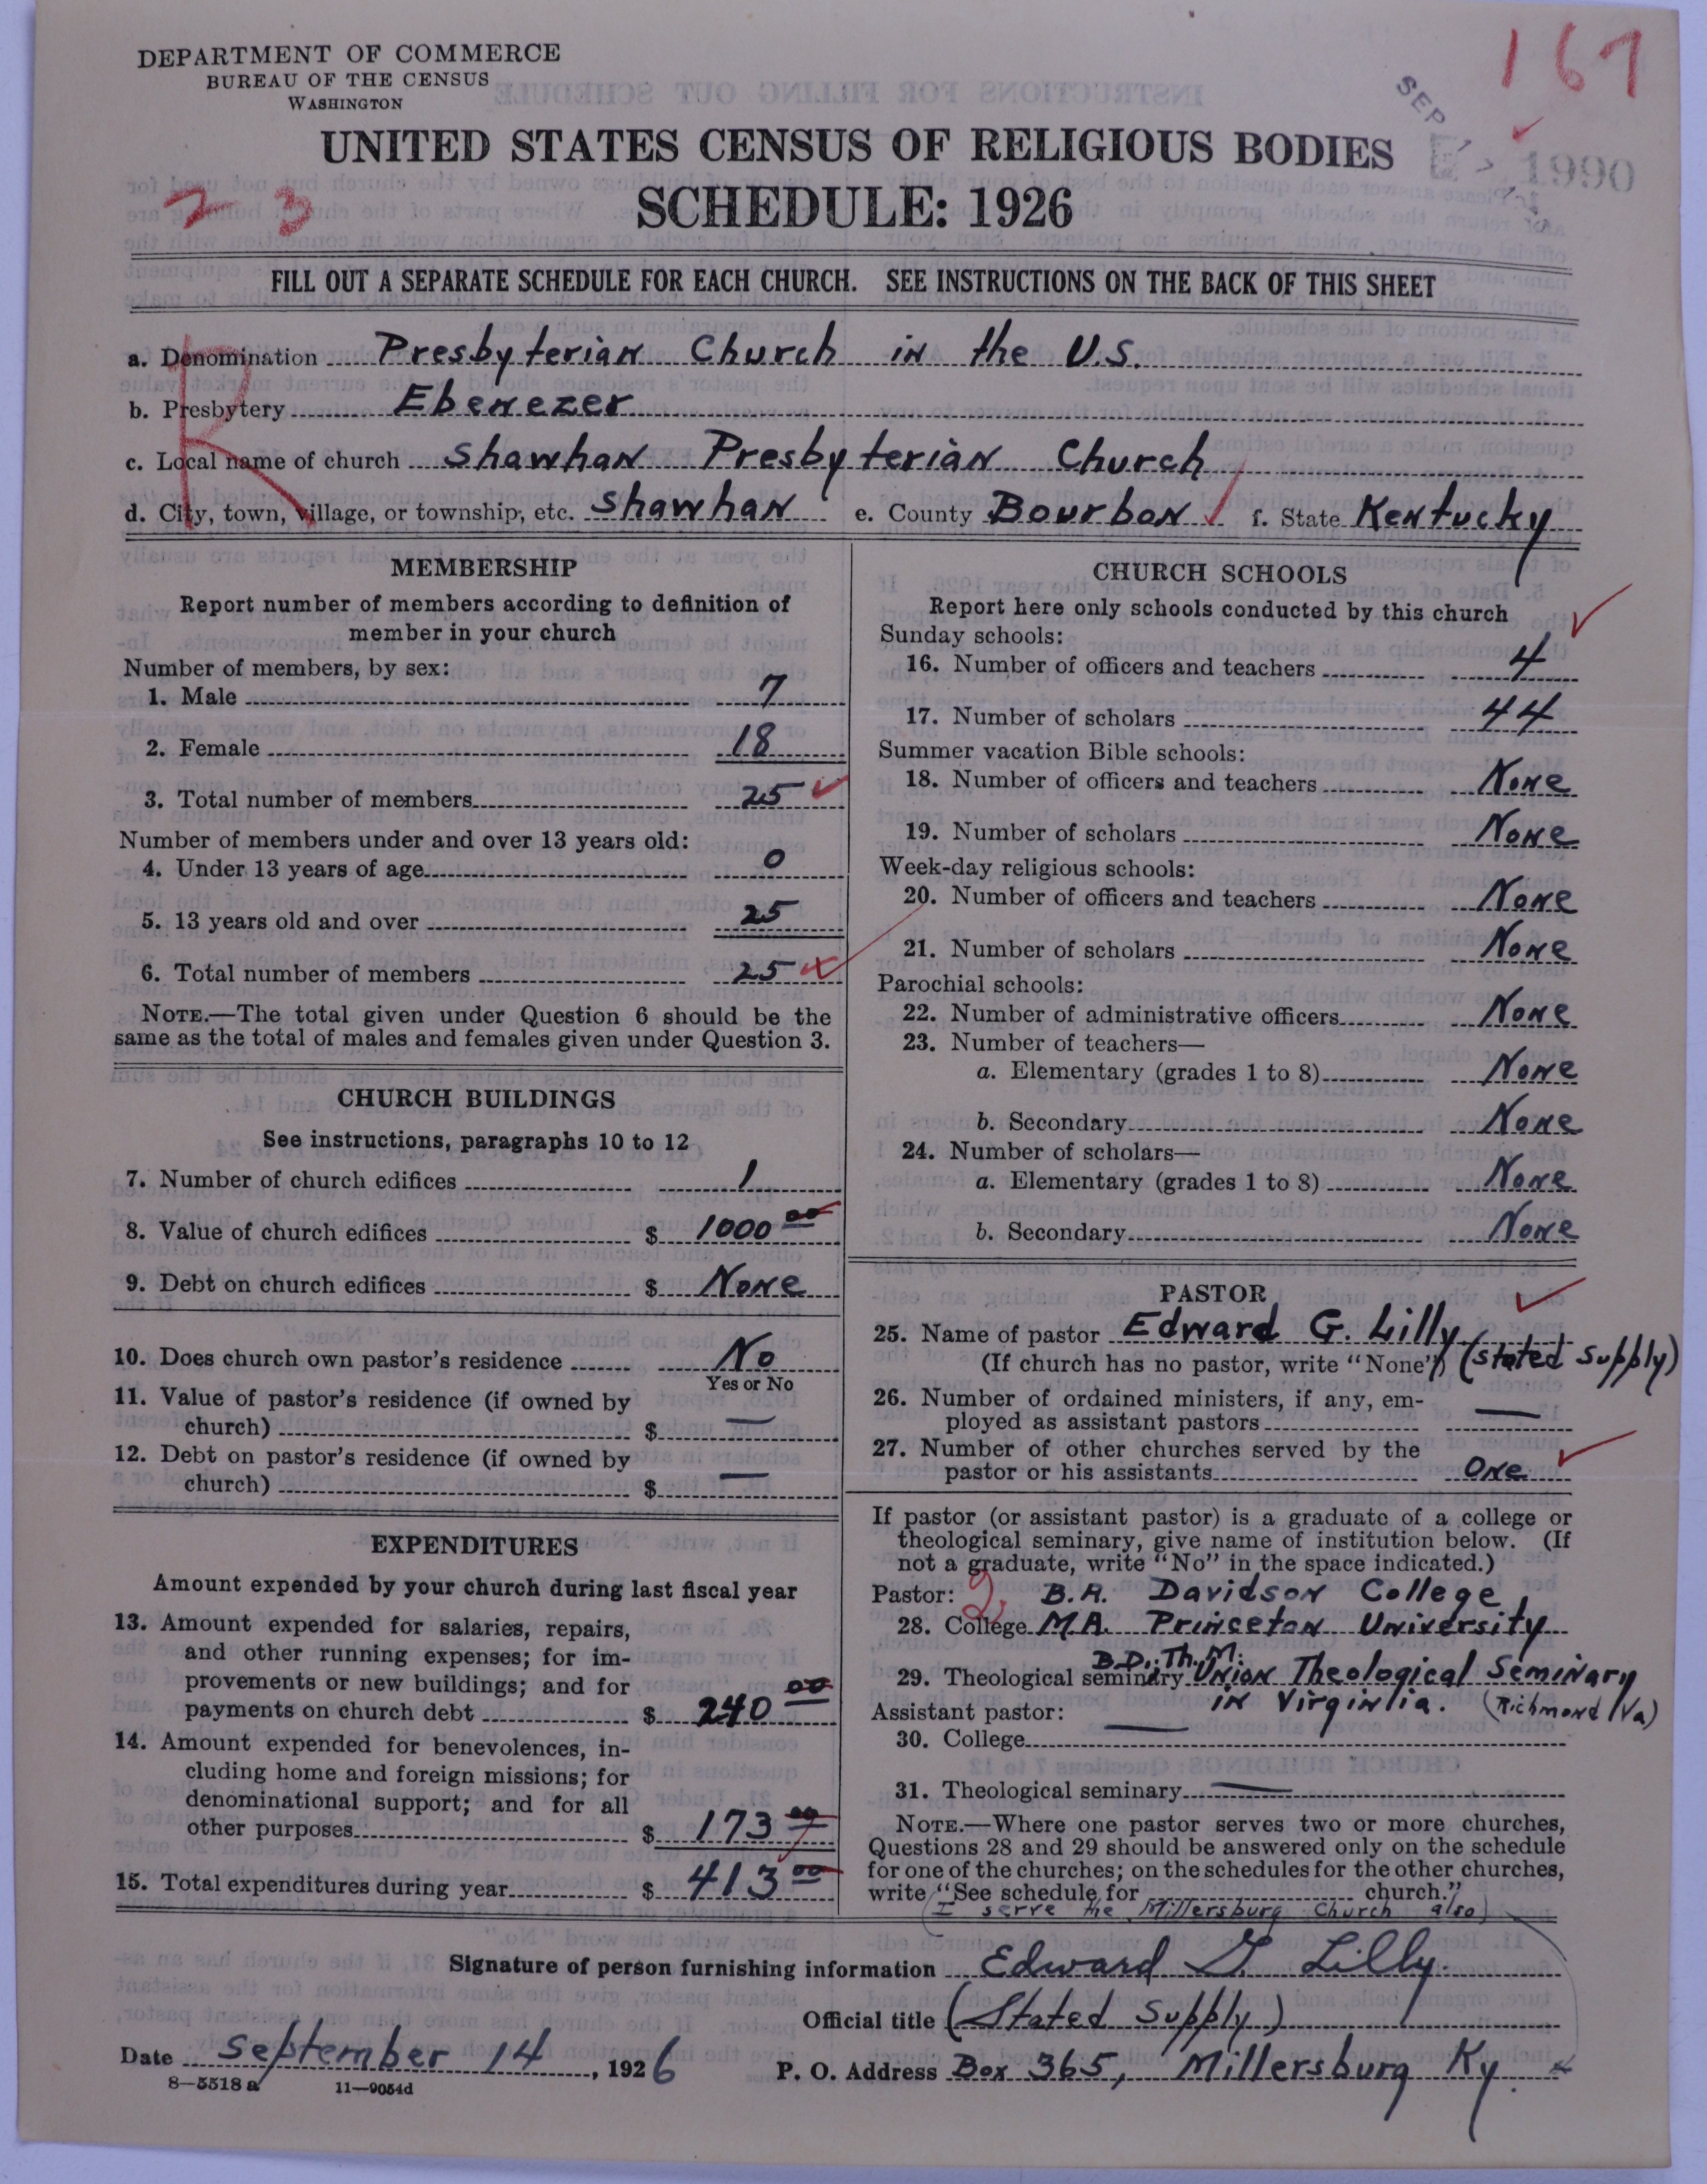 DEPARTMENT OF COMMERCE
BUREAU OF THE CENSUS
WASHINGTON
167
SEP
1990
UNITED STATES CENSUS OF RELIGIOUS BODIES
SCHEDULE: 1926
23
FILL OUT A SEPARATE SCHEDULE FOR EACH CHURCH. SEE INSTRUCTIONS ON THE BACK OF THIS SHEET
R
a. Denomination Presbyterian Church in the U.S.
b. Presbytery Ebenezer
c. Local name of church Shawhan Presbyterian Church
d. City, town, village, or township, etc. Shawhan e. County Bourbon f. State Kentucky
MEMBERSHIP
Report number of members according to definition of
member in your church
Number of members, by sex:
1. Male 7
2. Female 18
3. Total number of members 25
Number of members under and over 13 years old:
4. Under 13 years of age 0
5. 13 years old and over 25
6. Total number of members 25
NOTE.—The total given under Question 6 should be the
same as the total of males and females given under Question 3.
CHURCH BUILDINGS
See instructions, paragraphs 10 to 12
7. Number of church edifices 1
8. Value of church edifices $ 1000 00
9. Debt on church edifices $ None
10. Does church own pastor's residence No
Yes or No
11. Value of pastor's residence (if owned by
church) $ —
12. Debt on pastor's residence (if owned by
church) $ —
EXPENDITURES
Amount expended by your church during last fiscal year
13. Amount expended for salaries, repairs,
and other running expenses; for im-
provements or new buildings; and for
payments on church debt $ 240 00
14. Amount expended for benevolences, in-
cluding home and foreign missions; for
denominational support; and for all
other purposes $ 173 00
15. Total expenditures during year $ 413 00
CHURCH SCHOOLS
Report here only schools conducted by this church
Sunday schools:
16. Number of officers and teachers 4
17. Number of scholars 44
Summer vacation Bible schools:
18. Number of officers and teachers None
19. Number of scholars None
Week-day religious schools:
20. Number of officers and teachers None
21. Number of scholars None
Parochial schools:
22. Number of administrative officers None
23. Number of teachers—
a. Elementary (grades 1 to 8) None
b. Secondary None
24. Number of scholars—
a. Elementary (grades 1 to 8) None
b. Secondary None
PASTOR
25. Name of pastor Edward G. Lilly
(If church has no pastor, write "None") (stated supply)
26. Number of ordained ministers, if any, em-
ployed as assistant pastors —
27. Number of other churches served by the
pastor or his assistants One
If pastor (or assistant pastor) is a graduate of a college or
theological seminary, give name of institution below. (If
not a graduate, write "No" in the space indicated.)
Pastor: 2 B.A. Davidson College
28. College M.A. Princeton University
B.D., Th.M.
29. Theological seminary Union Theological Seminary
in Virginia. (Richmond Va)
Assistant pastor:
30. College —
31. Theological seminary —
NOTE.—Where one pastor serves two or more churches,
Questions 28 and 29 should be answered only on the schedule
for one of the churches; on the schedules for the other churches,
write "See schedule for church."
(I serve the Millersburg Church also)
Signature of person furnishing information Edward G. Lilly.
Official title (Stated Supply)
Date September 14, 1926 P. O. Address Box 365, Millersburg Ky.
8—5518 a 11—9054d